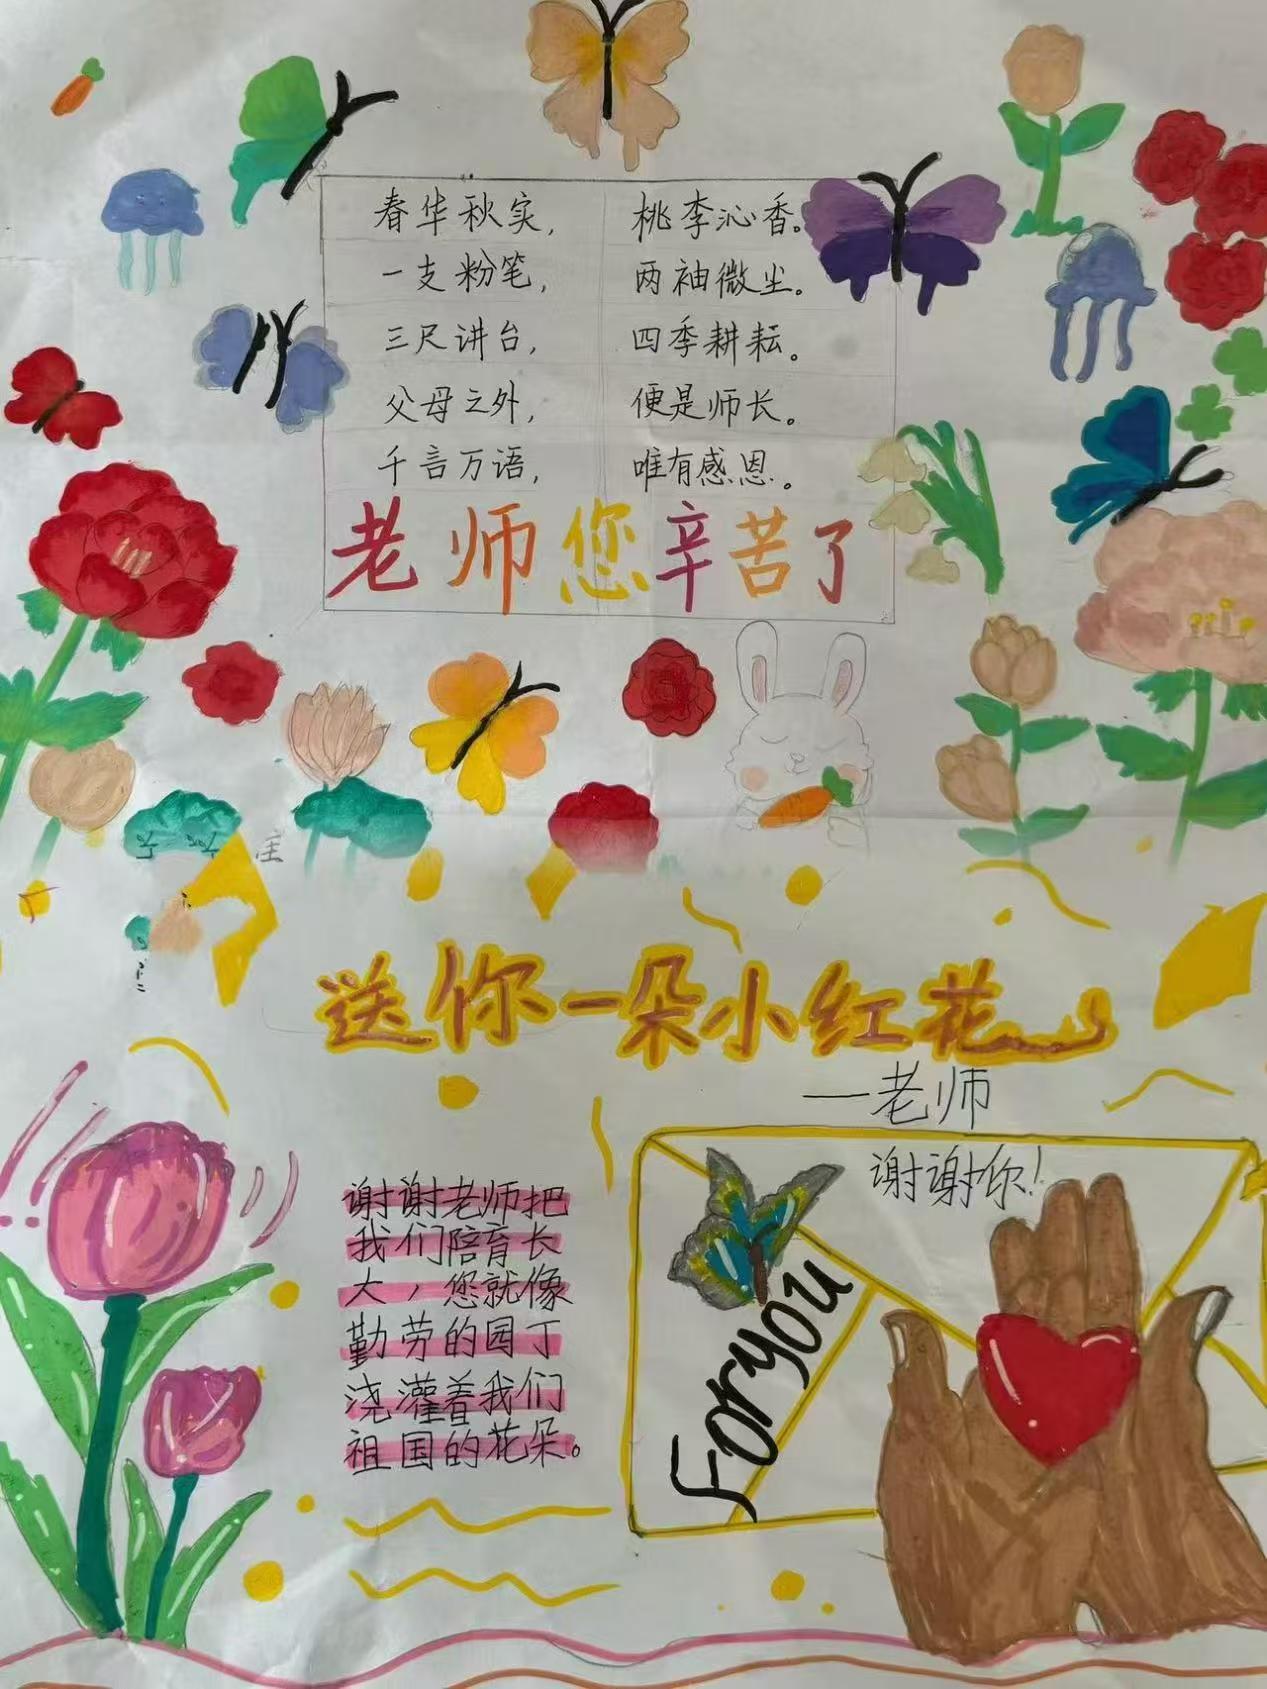 春华秋实，桃李沁香。
一支粉笔，两袖微尘。
三尺讲台，四季耕耘。
父母之外，便是师长。
千言万语，唯有感恩。
老师您辛苦了
送你一朵小红花
—老师
谢谢老师把
我们陪育长
大，您就像
勤劳的园丁
浇灌着我们
祖国的花朵。
谢谢你！
Foryou